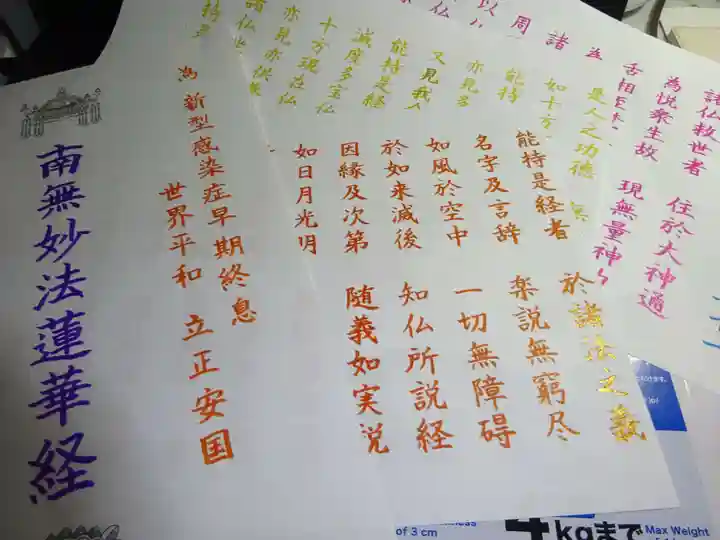 諸仏救世者 住於大神通
為悦衆生故 現無量神
舌相
諸
周
以
是人之功徳 無
如十方
能持
亦見
又見我
能持是経
滅度多宝仏
十方現在仏
亦見亦供養
諸仏
持是
能持是経者 於諸法之義
名字及言辞 楽説無窮尽
如風於空中 一切無障碍
於如来滅後 知仏所説経
因縁及次第 随義如実説
如日月光明
為 新型感染症早期終息
世界平和 立正安国
南無妙法蓮華経
of 3 cm
kgまで
Max Weight